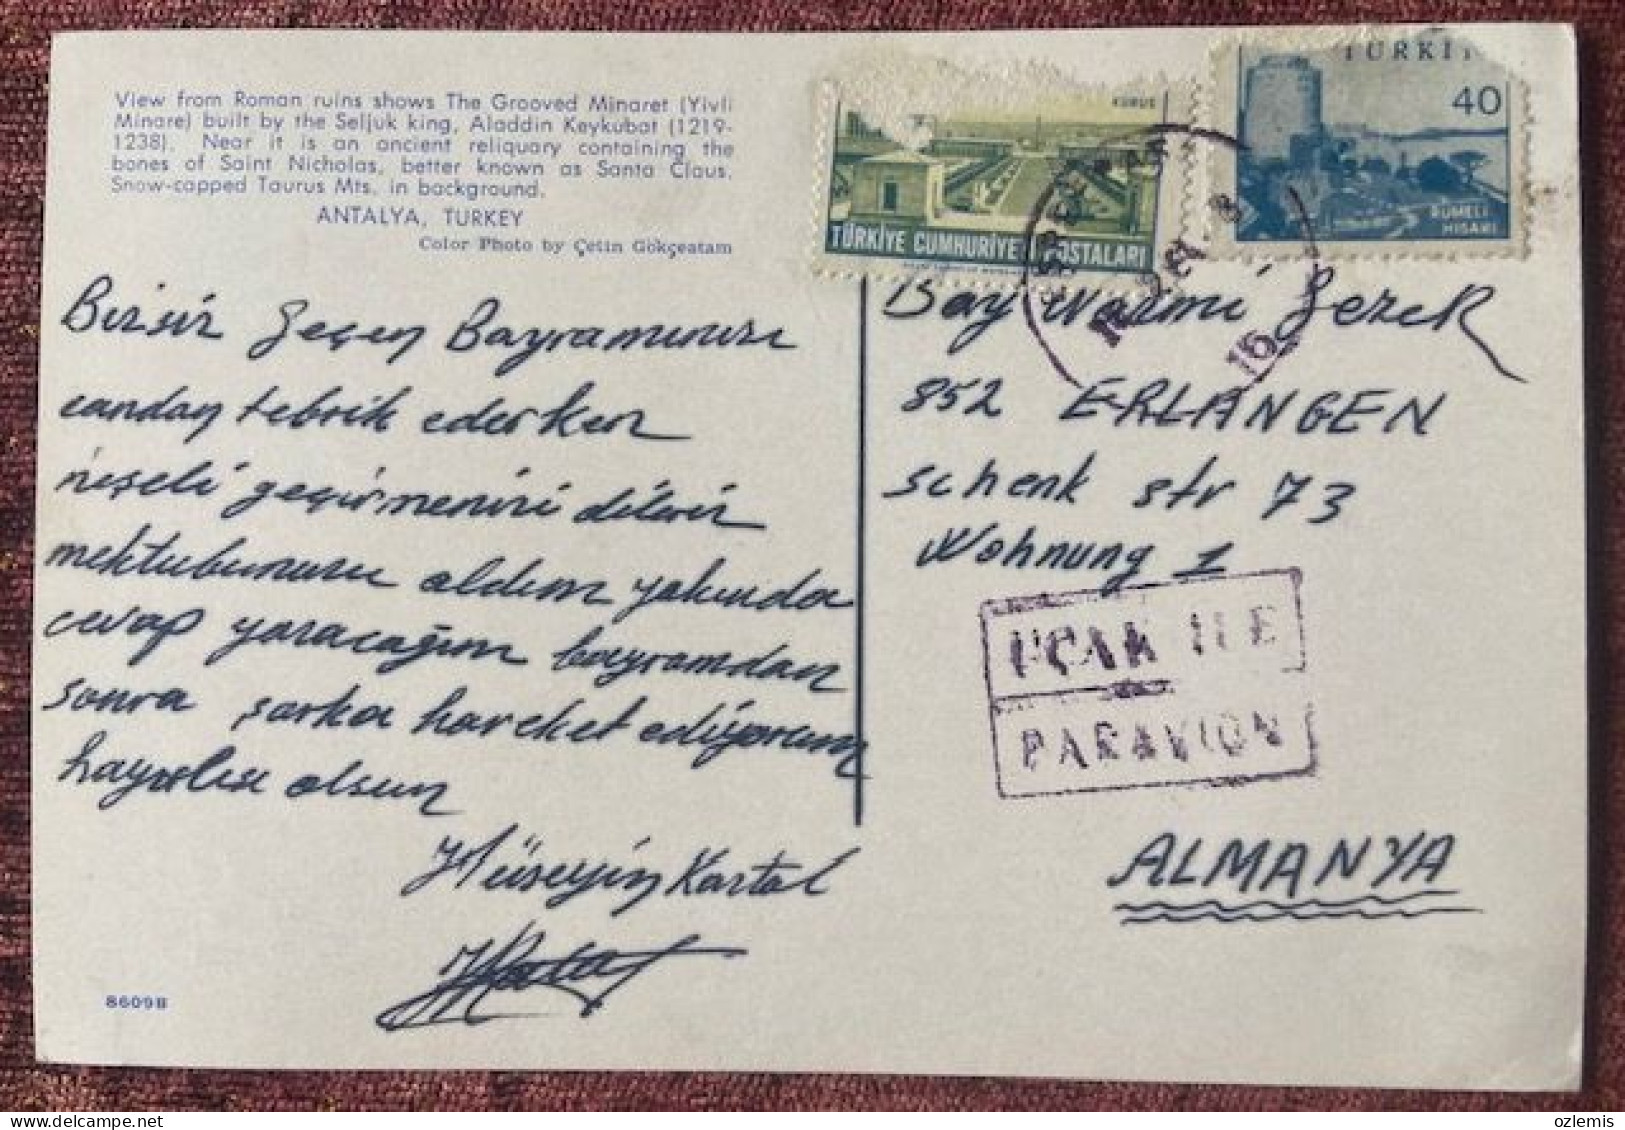 View from Roman ruins shows The Grooved Minaret (Yivli
Minare) built by the Seljuk king, Aladdin Keykubat (1219-
1238). Near it is an ancient reliquary containing the
bones of Saint Nicholas, better known as Santa Claus.
Snow-capped Taurus Mts. in background.
ANTALYA, TURKEY
Color Photo by Çetin Gökçeatam
Geçen Bayramınızı
candan tebrik ederken
neşeli geçirmenizi dilerim
mektubunuzu aldım yakında
cevap yazacağım bayramdan
sonra şarka hareket ediyorum
hayırlısı olsun
Hüseyin Kartal
8609B
KURUŞ
TÜRKİYE CUMHURİYETİ POSTALARI
TÜRKİYE
40
RUMELİ
HİSARI
16
Bay Nazmi
852 ERLANGEN
Schenk str 73
Wohnung 1
UÇAK İLE
PAR AVION
ALMANYA
ozlemis